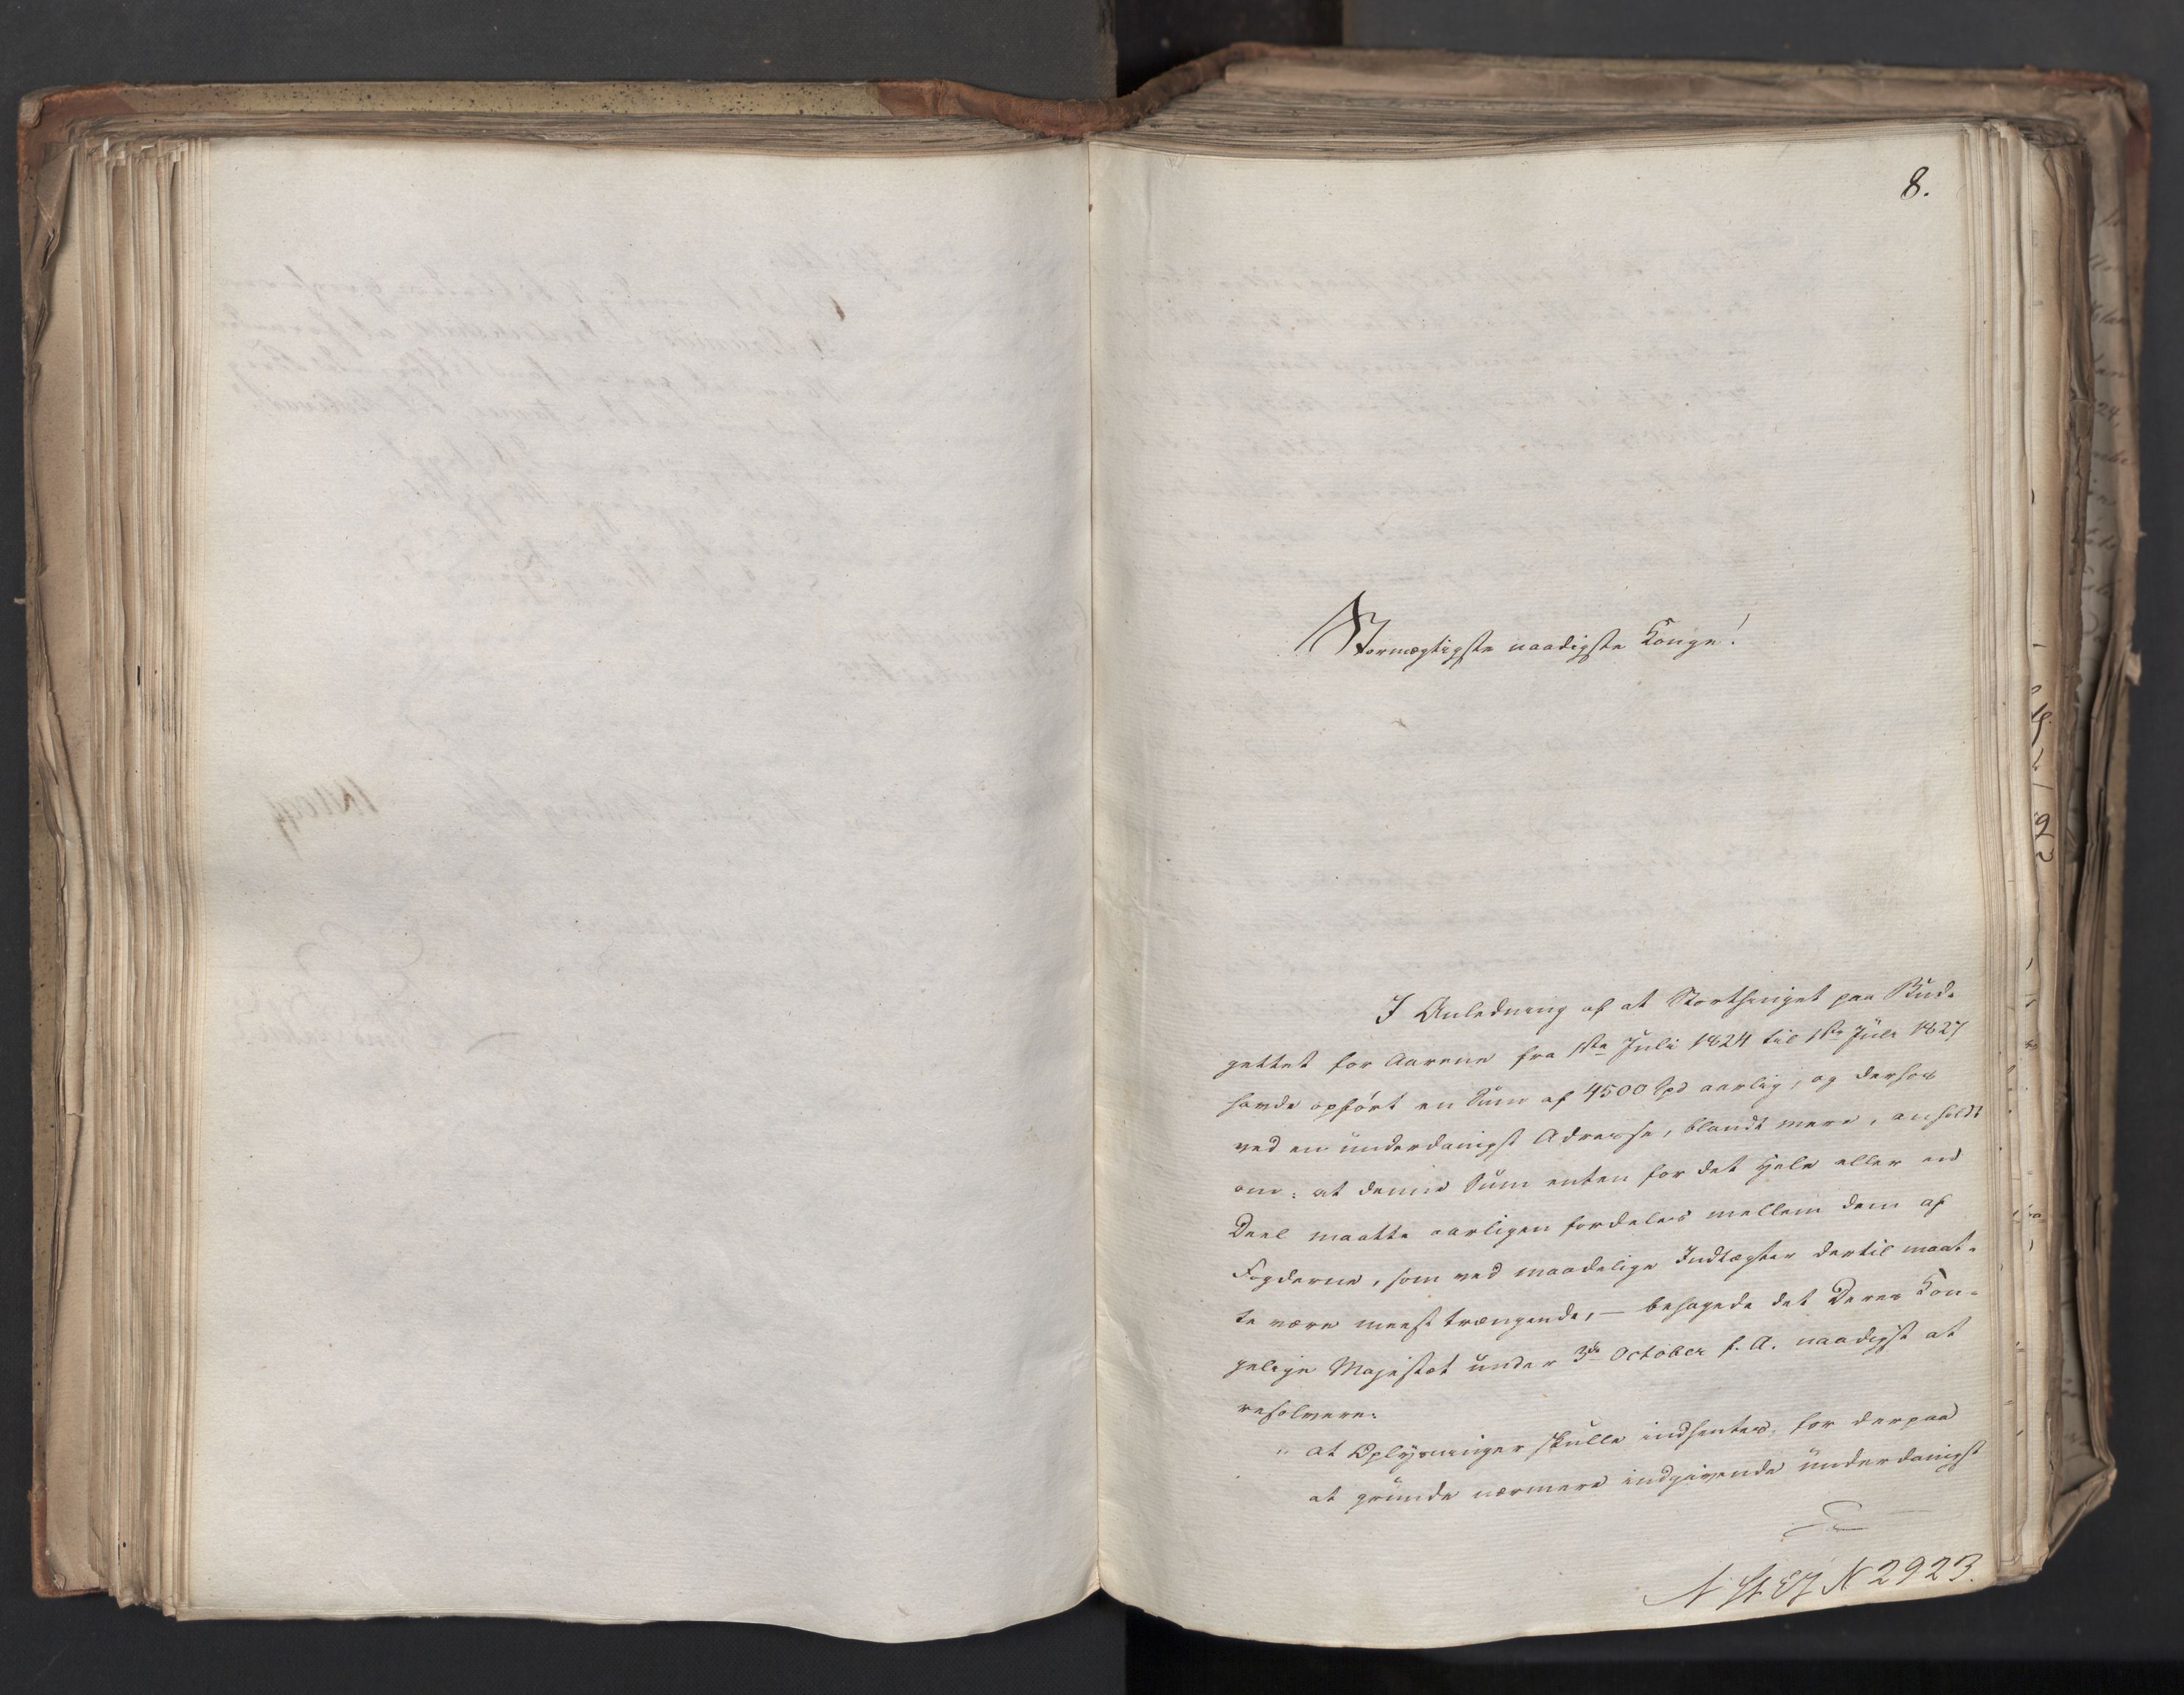 8.
Stormægtigste naadigste Konge!
I Anledning af at Storthinget paa Bud-
gettet for Aarene fra 1ste Juli 1824 til 1ste Juli 1827
havde opført en Sum af 4500 Spd aarlig, og derhos
ved en underdanigst Adresse, blandt mere, anholdt
om: at denne Sum enten for det Hele eller en
Deel maatte aarligen fordeles mellem dem af
Fogderne, som ved maadelige Indtægter dertil maat-
te være meest trængende, — behagede det Deres Kon-
gelige Majestæt under 3die October f. A. naadigst at
resolvere:
"at Oplysninger skulle indhentes, for derpaa
at grunde nærmere indgivende underdanigst
N 2923.